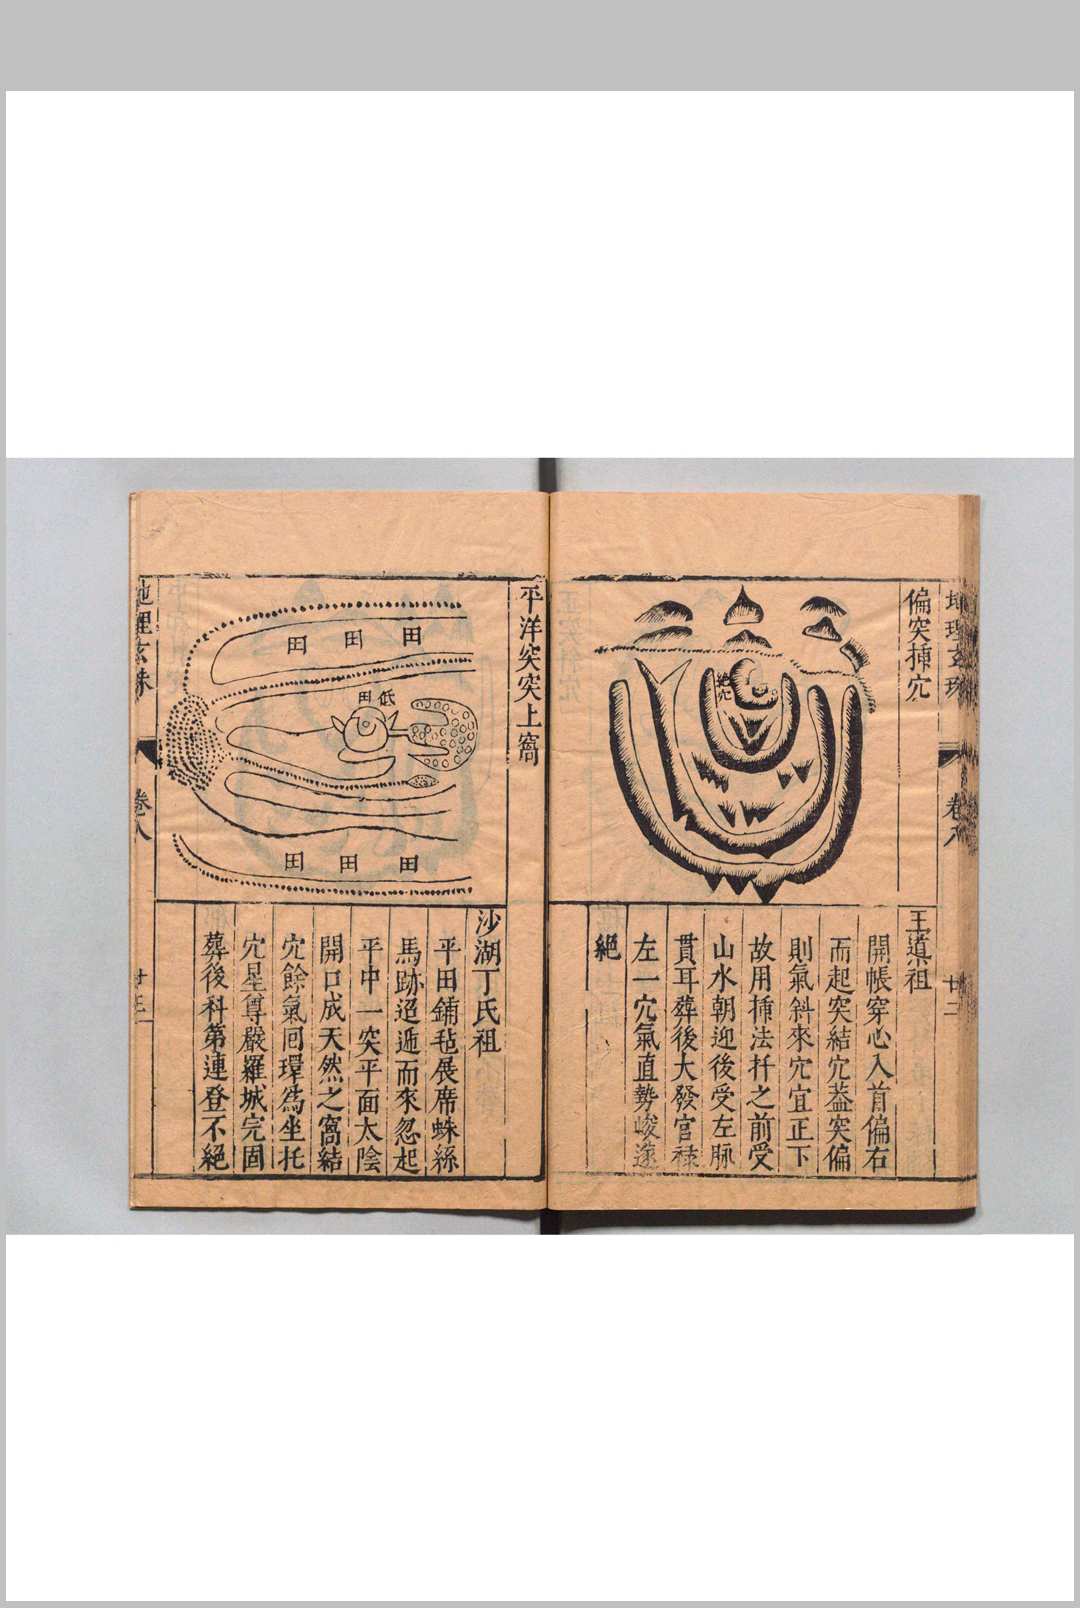 地理玄珠
卷八
廿二
偏突揷穴
絕穴
王道祖
開帳穿心入首偏右
而起突結穴葢突偏
則氣斜來穴宜正下
故用揷法扦之前受
山水朝迎後受左脉
貫耳葬後大發官祿
左一穴氣直勢峻遂
絕
平洋突突上窩
田 田 田
田低
田 田 田
沙湖丁氏祖
平田鋪毡展席蛛絲
馬跡迢遞而來忽起
平中一突平面太陰
開口成天然之窩結
穴餘氣囘環爲坐托
穴星尊嚴羅城完固
葬後科第連登不絕
地理玄珠
卷八